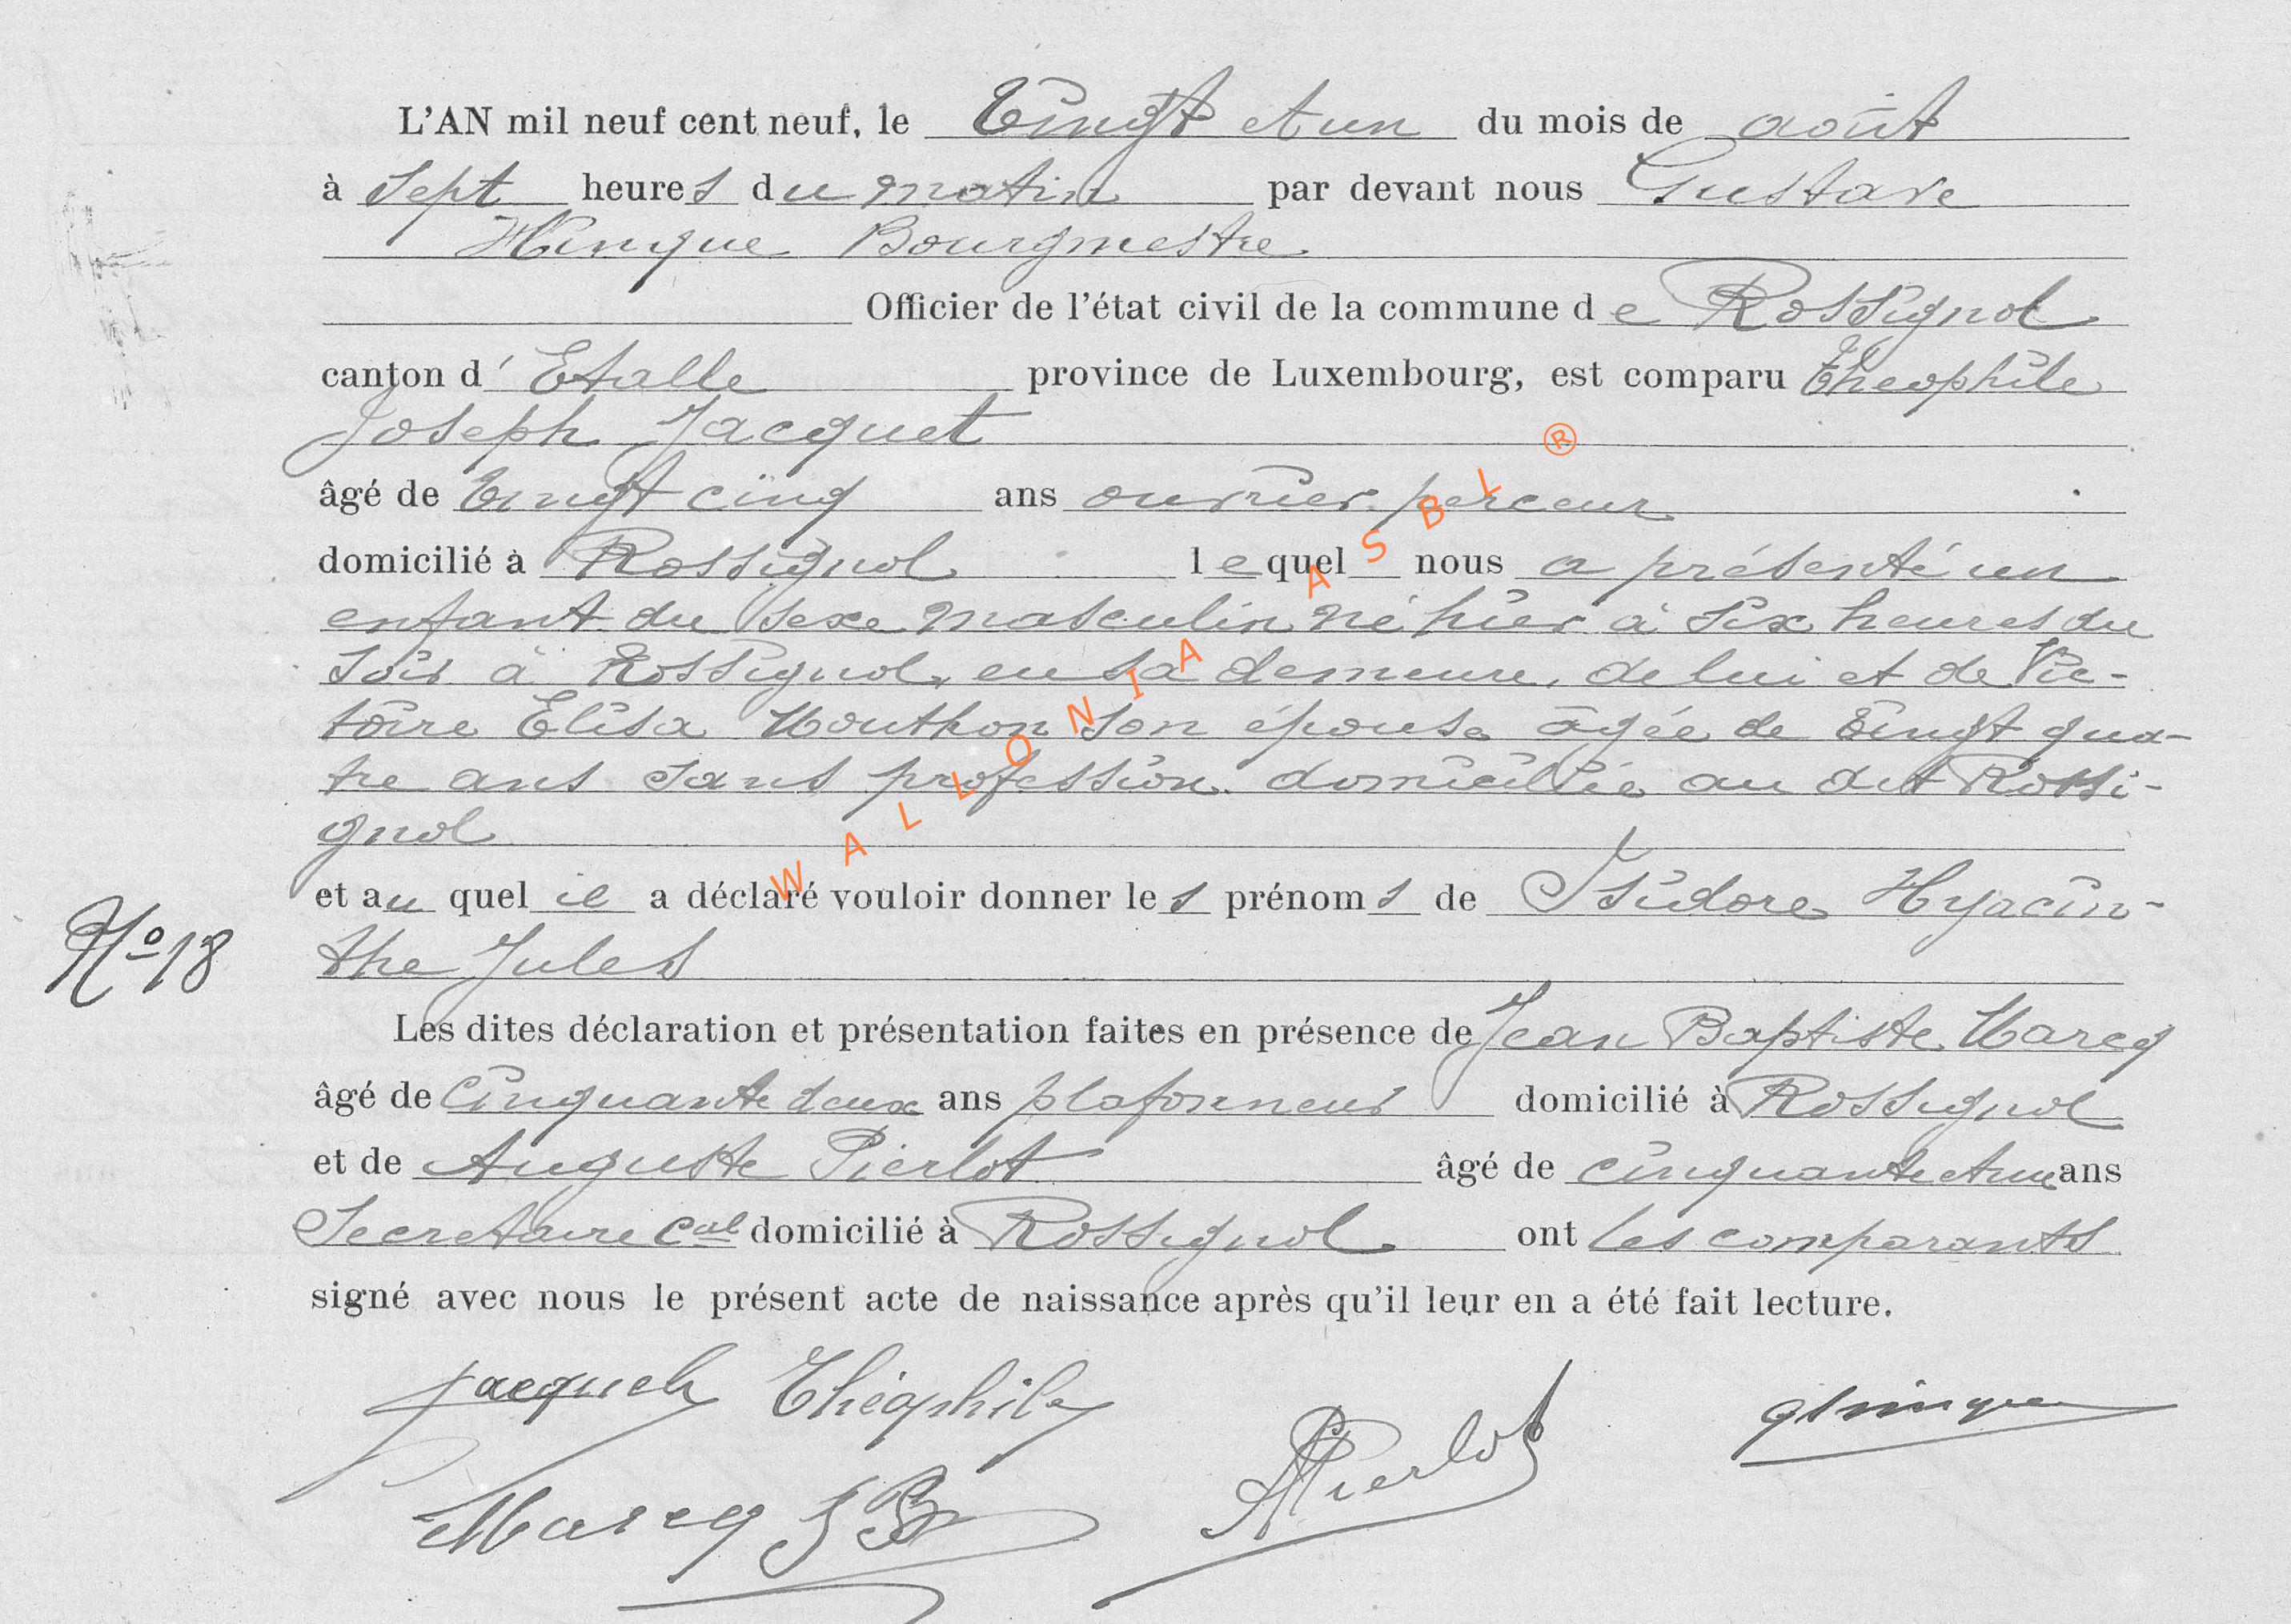 L'AN mil neuf cent neuf, le Vingt et un du mois de août
à Sept heures du matin par devant nous Gustave
Hinque Bourgmestre
Officier de l'état civil de la commune de Rossignol
canton d' Etalle province de Luxembourg, est comparu Théophile
Joseph Jacquet
âgé de Vingt cinq ans ouvrier perceur
domicilié à Rossignol lequel nous a présenté un
enfant du sexe masculin né hier à six heures du
soir à Rossignol, en sa demeure, de lui et de Vic-
toire Elisa Mouthon son épouse âgée de Vingt qua-
tre ans sans profession domiciliée au dit Rossi-
gnol
et au quel il a déclaré vouloir donner les prénoms de Isidore Hyacin-
N° 18
the Jules
Les dites déclaration et présentation faites en présence de Jean Baptiste Marcq
âgé de Cinquante deux ans plafonneur domicilié à Rossignol
et de Auguste Pierlot âgé de cinquante et un ans
Secretaire Cal domicilié à Rossignol ont les comparants
signé avec nous le présent acte de naissance après qu'il leur en a été fait lecture.
Jacquet Théophile
GHinque
APierlot
Marcq J B
WALLONIA ASBL ®